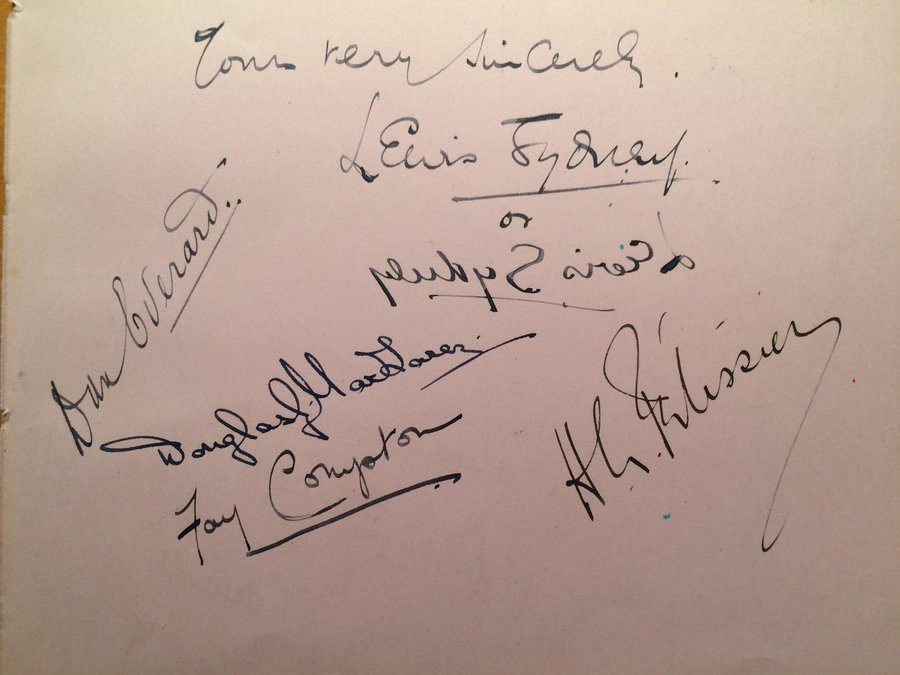 Yours very sincerely.
Lewis Sydney.
or
Lewis Sydney
Dan Everard..
Douglas
Fay Compton
H G Pélissier